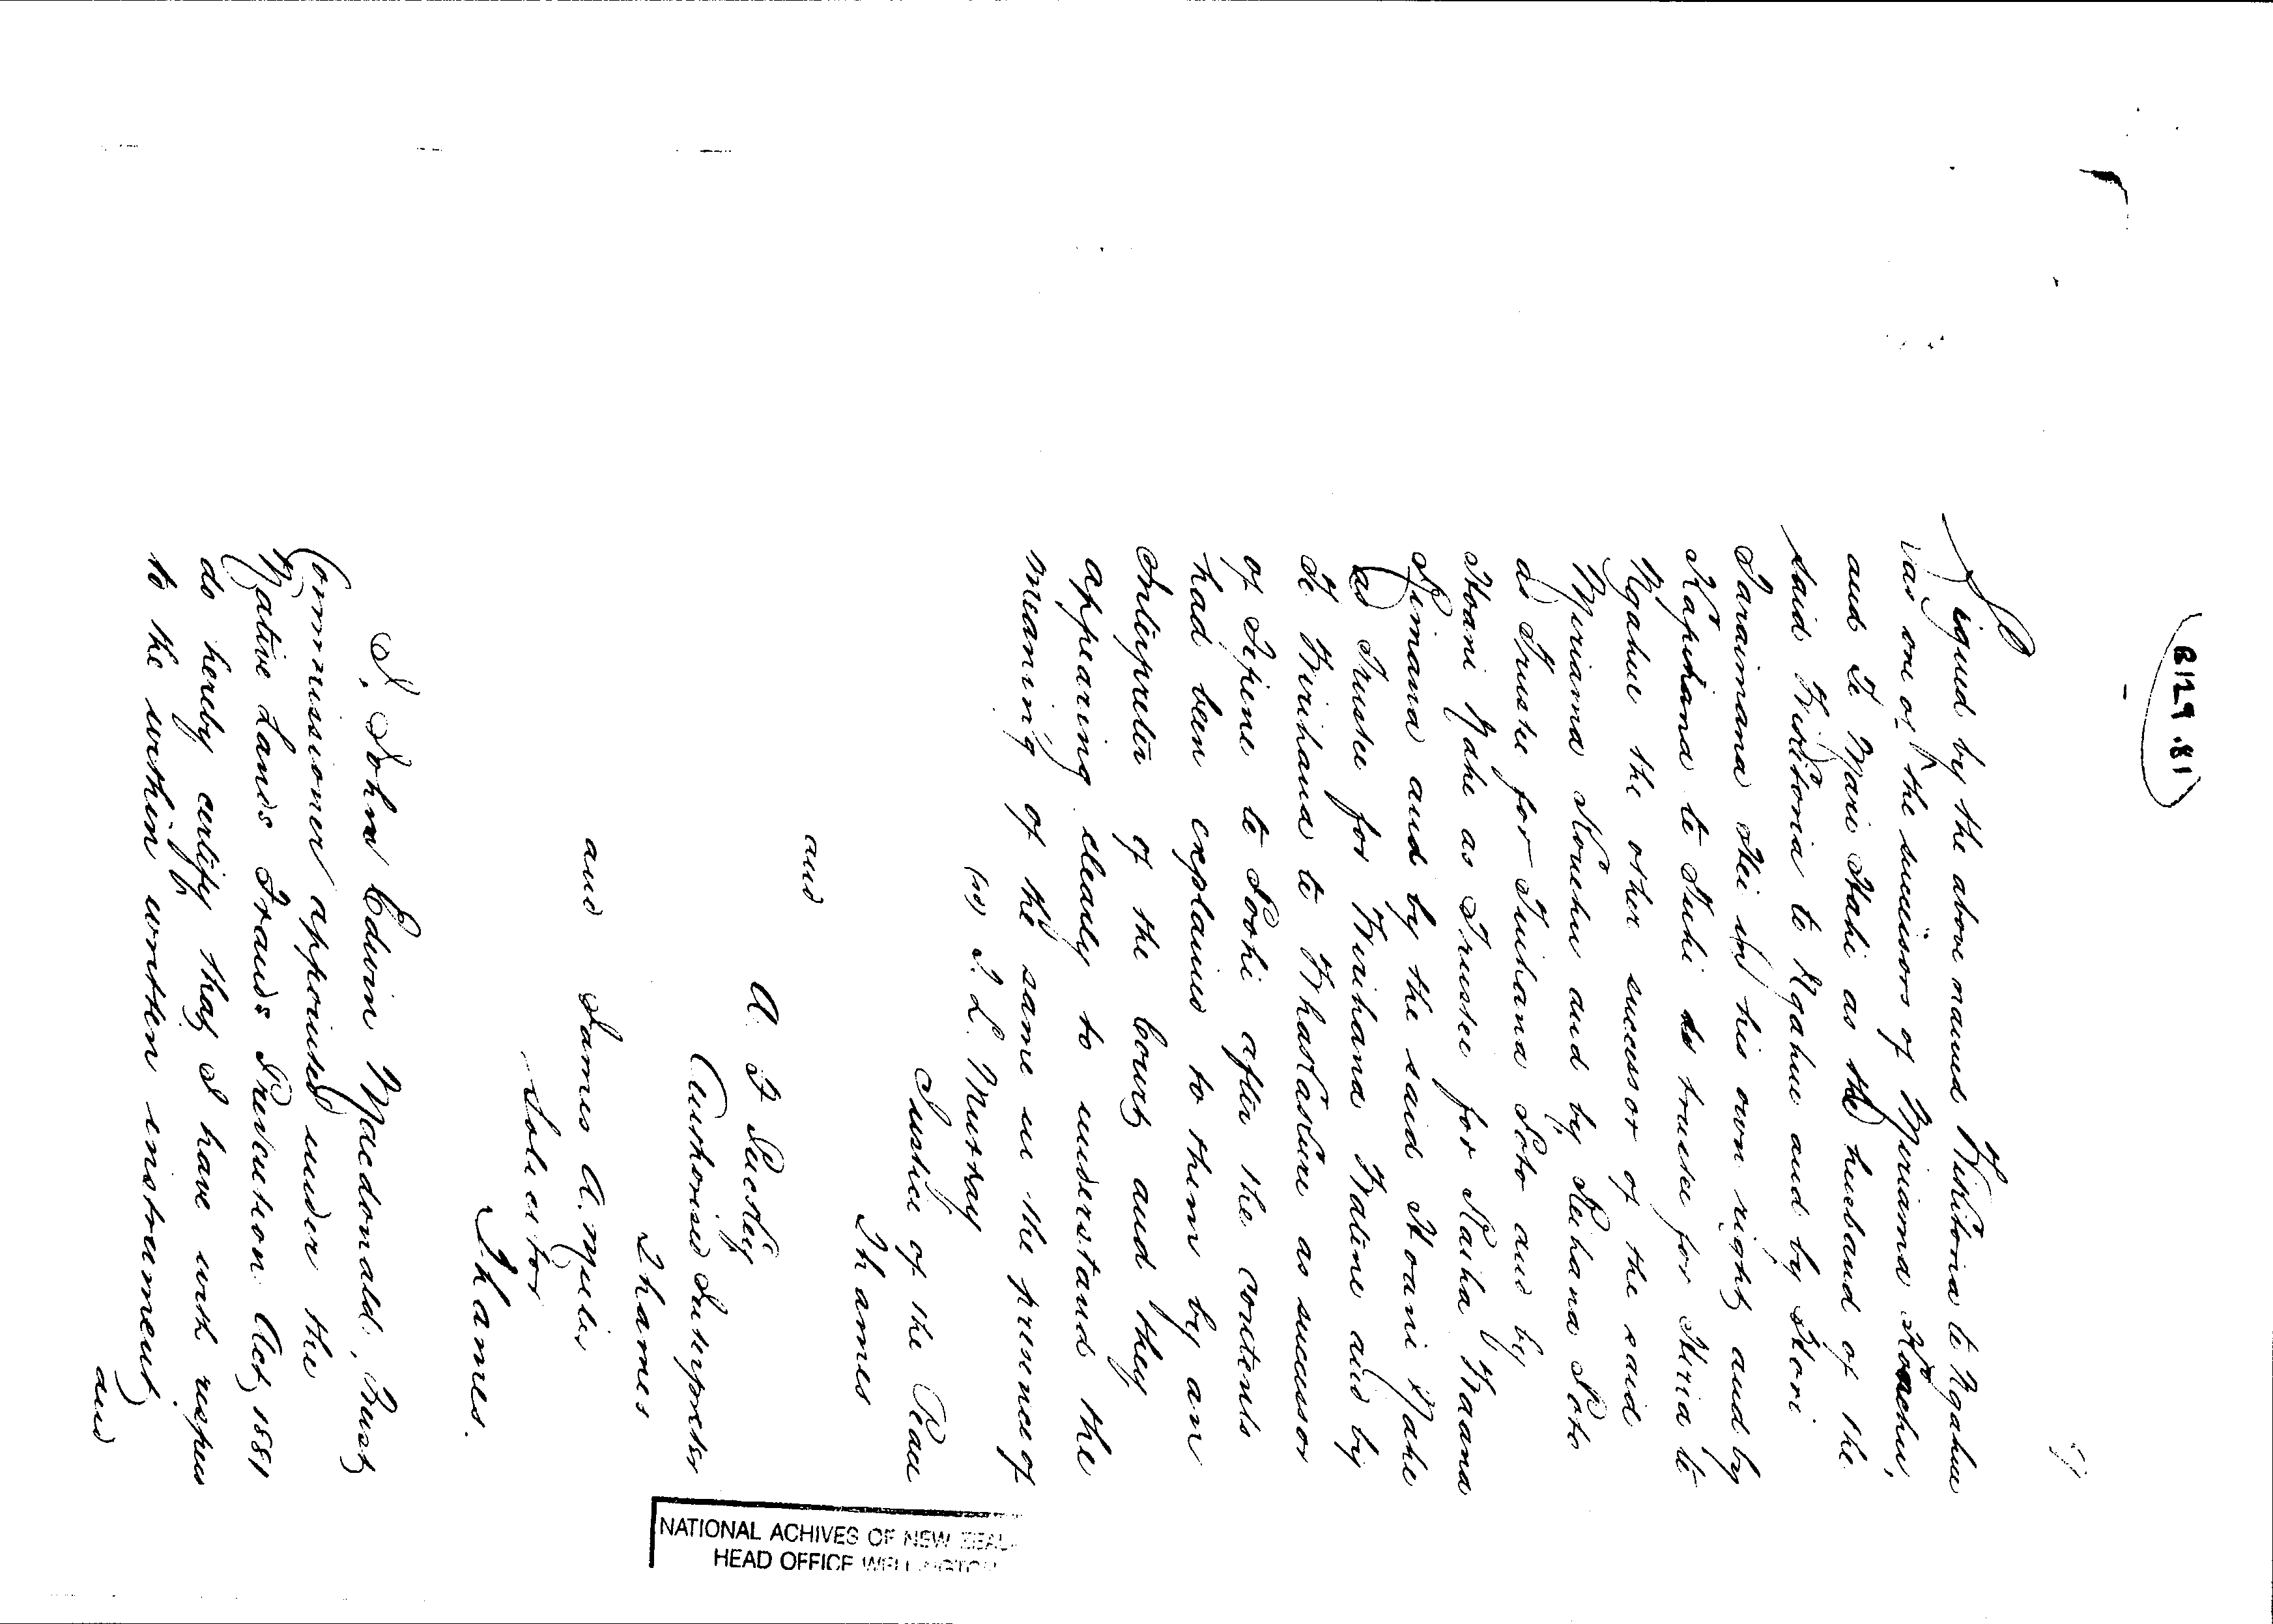 B129.81
Signed by the above named Wiritoria te Ngahue
was one of the successors of Miriama Konehu,
and Te Mari Hahi as the husband of the
said Wiritoria te Ngahue and by Hori
Paraimana Hei in his own right and by
Kapihana te Tuhi as trustee for Heria te
Ngahue the other successor of the said
Miriama Konehu and by Reihana Poto
as Trustee for Tuihana Poto and by
Hoani Nahe as Trustee for Raiha Waana
Rimana and by the said Hoani Nahe
as Trustee for Wirihana Watene and by
Te Wirihana te Whastasture as successor
of Tipene te Poohi after the contents
had been explained to them by an
Interpreter of the Court and they
appearing clearly to understand the
meaning of the same in the presence of
(sd) J. L. Murray
Justice of the Peace
Thames
and
A. F. Puckey
Authorised Interpreter
Thames
and James A. Miller
Solicitor
Thames.
I, John Edwin Macdonald, Trust
Commissioner appointed under the
Native Lands Frauds Prevention Act, 1881
do hereby certify that I have with respect
to the within written instrument
and
NATIONAL ACHIVES OF NEW ZEAL
HEAD OFFICE WELLINGTON